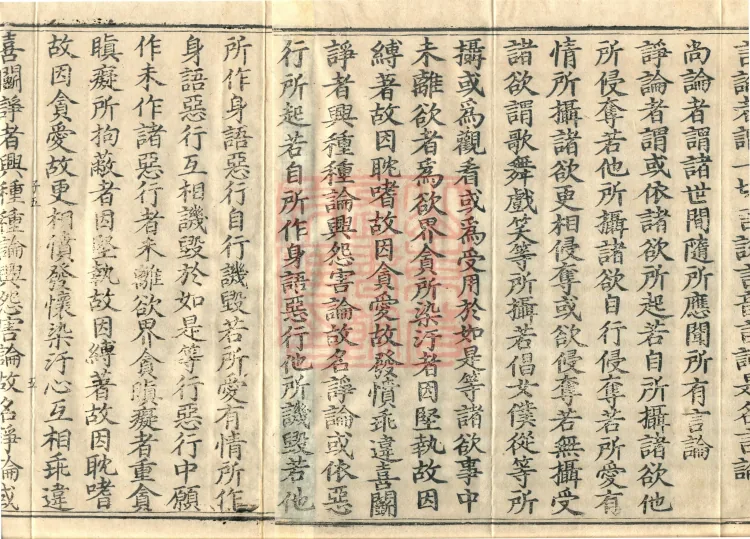 言論者謂一切言說言音言詞是名言論
尚論者謂諸世間隨所應聞所有言論
諍論者謂或依諸欲所起若自所攝諸欲他
所侵奪若他所攝諸欲自行侵奪若所愛有
情所攝諸欲更相侵奪或欲侵奪若無攝受
諸欲謂歌舞戲笑等所攝若倡女僕從等所
攝或為觀看或為受用於如是等諸欲事中
未離欲者為欲界貪所染汙者因堅執故因
縛著故因耽嗜故因貪愛故發憤乖違喜鬭
諍者興種種論興怨害論故名諍論或依惡
行所起若自所作身語惡行他所譏毀若他
所作身語惡行自行譏毀若所愛有情所作
身語惡行互相譏毀於如是等行惡行中願
作未作諸惡行者未離欲界貪瞋癡者重貪
瞋癡所拘蔽者因堅執故因縛著故因耽嗜
故因貪愛故更相憤發懷染汙心互相乖違
喜鬭諍者興種種論興怨害論故名諍論或